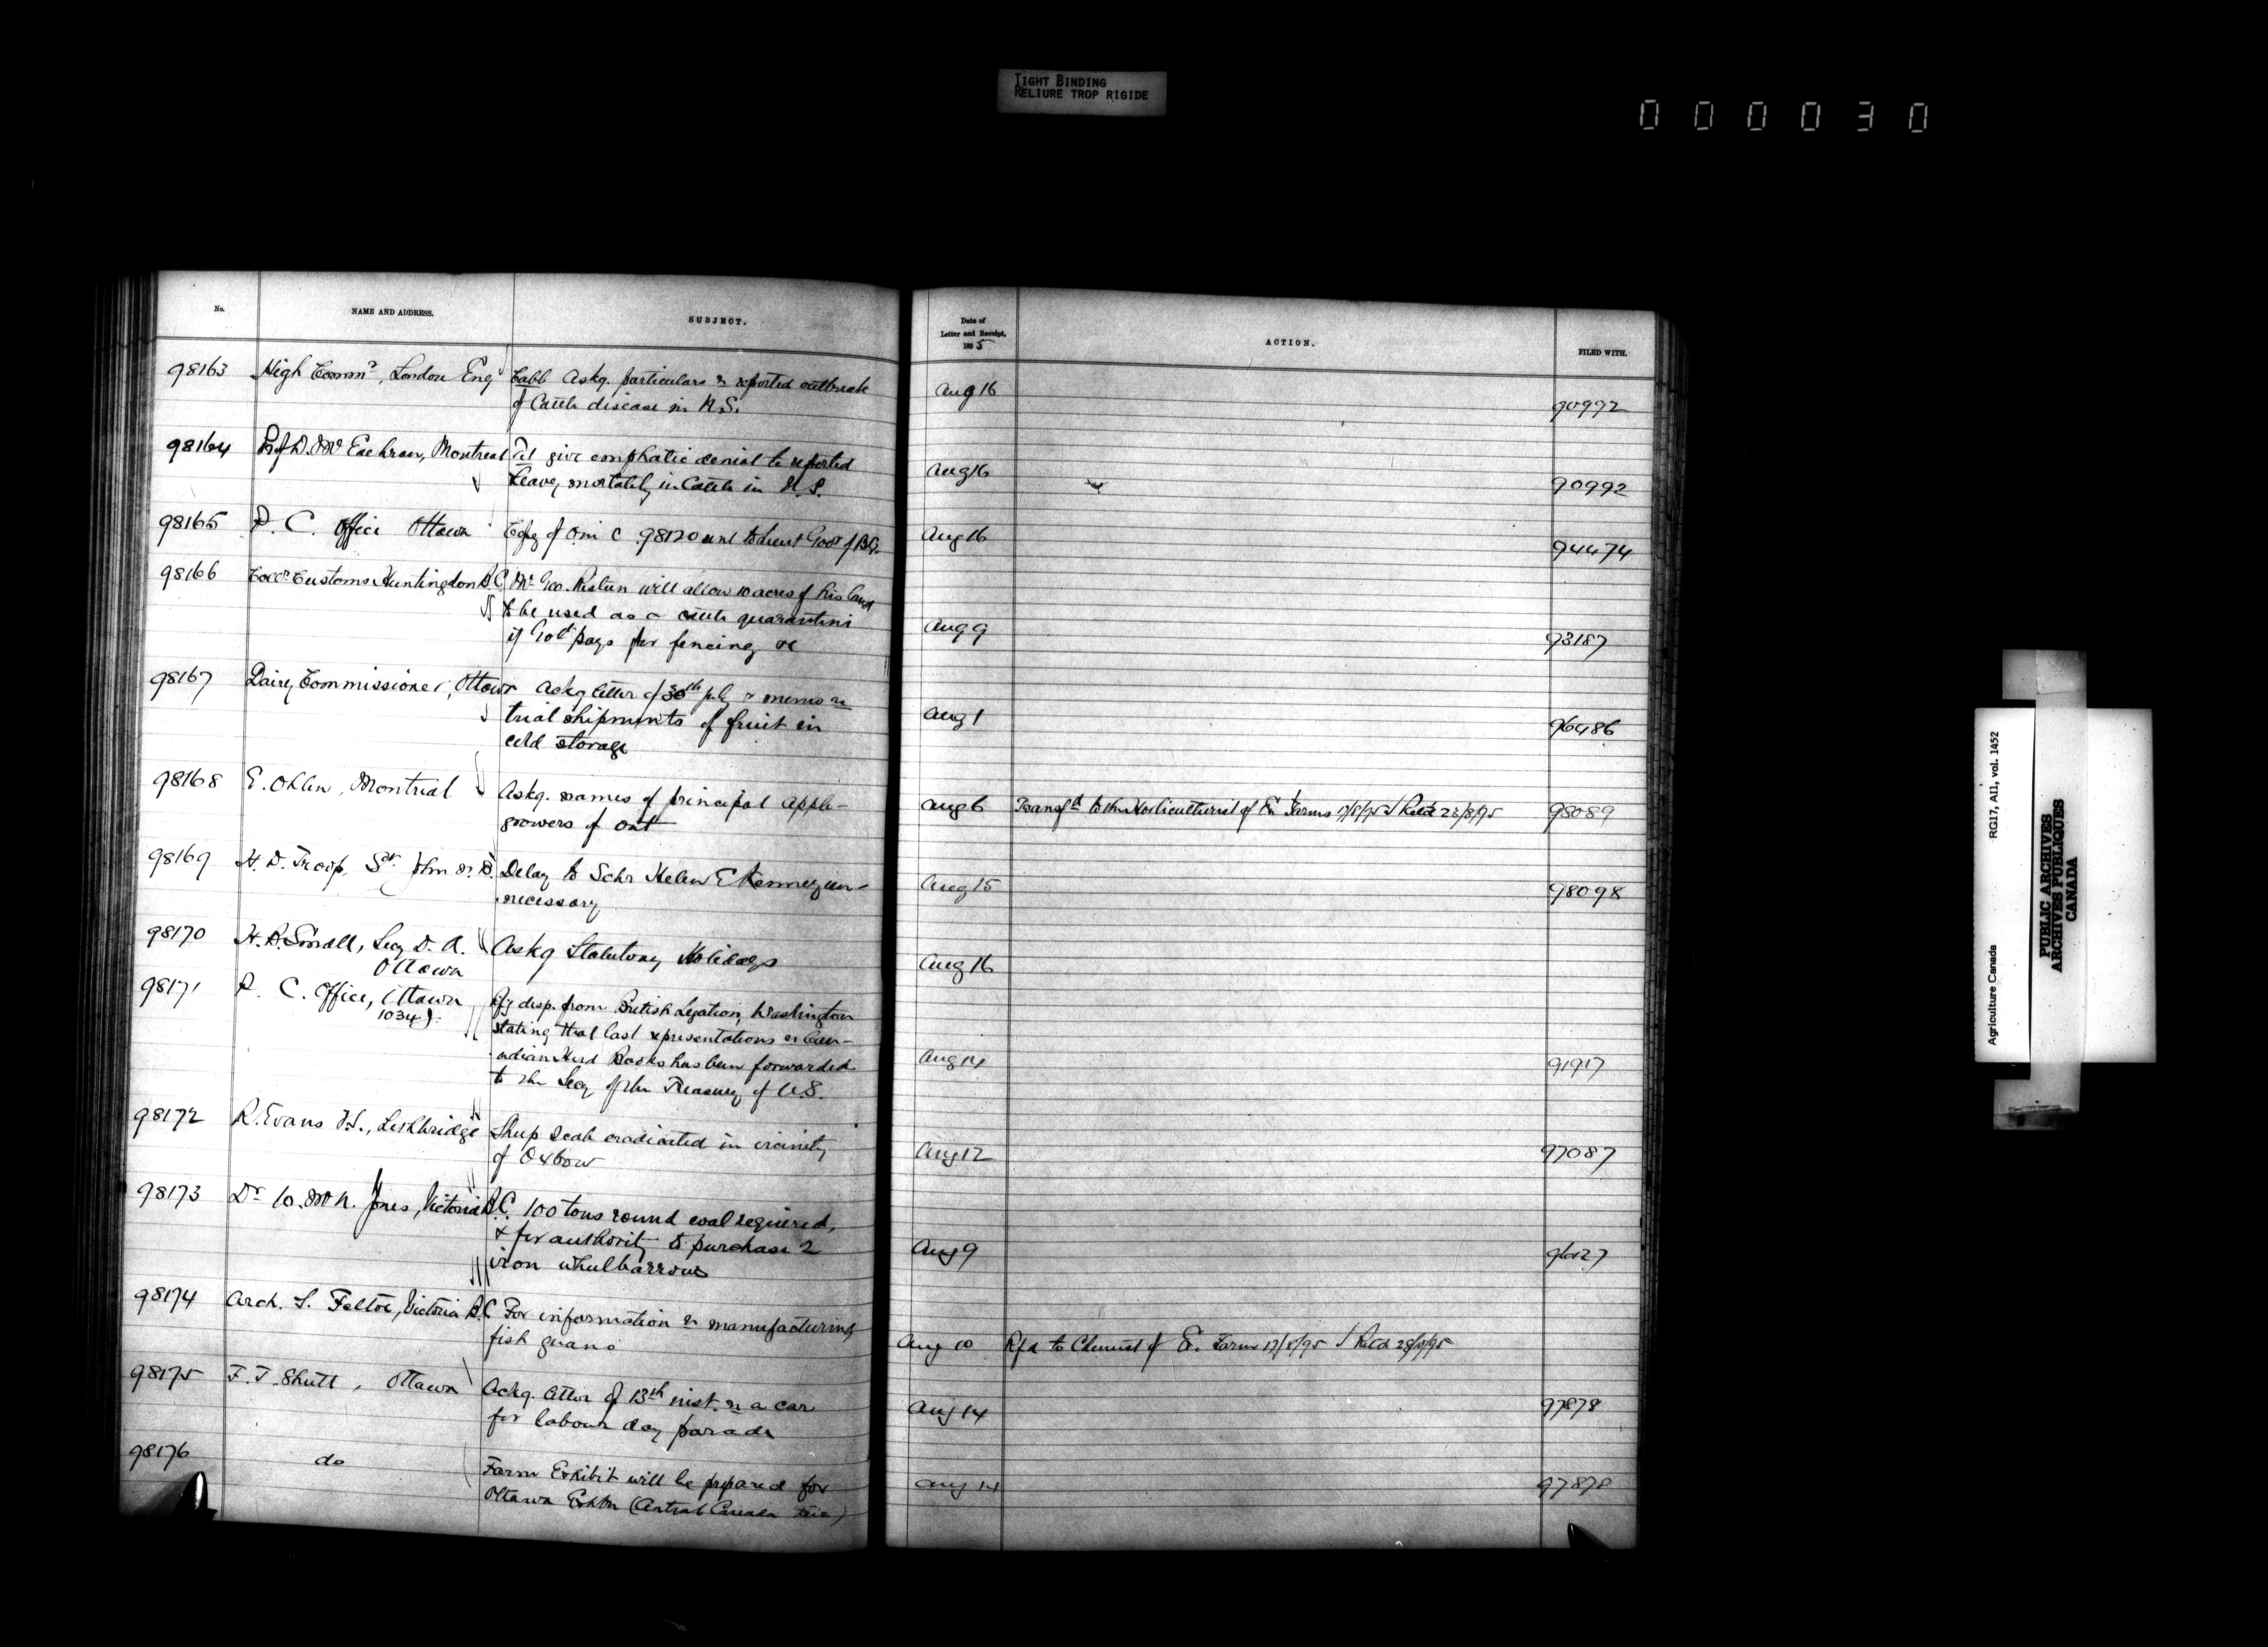 TIGHT BINDING
RELIURE TROP RIGIDE
000030
No. NAME AND ADDRESS. SUBJECT.
98163 High Commr, London Eng Cabb Askg. particulars re reported outbreak
of Cattle disease in N.S.
98164 Prof D. McEachran, Montreal Tel give emphatic denial to reported
heavy mortality in Cattle in N.S.
98165 P. C. Office Ottawa Copy of O in C 98120 sent to Lieut Govr of B.C.
98166 Collr Customs Huntingdon B.C. Mr Geo. will allow 10 acres of his land
to be used as a cattle quarantine
if Govt pays for fencing &c
98167 Dairy Commissioner, Ottawa Ackg letter of 30th July & memo re
trial shipments of fruit in
cold storage
98168 E. Ohlen, Montreal Askg. names of principal apple-
growers of Ont
98169 H. D. Troop, St. John N.B. Delay to Schr Helen E Kenney un-
necessary
98170 H. B. Small, Secy D. A. Askg Statutory Holidays
Ottawa
98171 P. C. Office, Ottawa Cpy desp. from British Legation, Washington
1034 J. stating that last representations re Can-
adian Herd Books has been forwarded
to the Secy of the Treasury of U.S.
98172 R. Evans V.S., Lethbridge Sheep scab eradicated in vicinity
of Oxbow
98173 Dr W. McN. Jones, Victoria B.C. 100 tons round coal required,
& for authority to purchase 2
iron wheelbarrows
98174 Arch. S. Feltoe, Victoria B.C For information re manufacturing
fish guano
98175 F. T. Shutt, Ottawa Ackg. letter of 13th inst. re a car
for labour day parade
98176 do Farm Exhibit will be prepared for
Ottawa Exhbn (Central Canada Fair)
Date of
Letter and Receipt,
1895 ACTION. FILED WITH.
Aug 16 90992
Aug 16 90992
Aug 16 94474
Aug 9 93187
Aug 1 96486
Aug 6 Transfd to the Horticulturist of Ex Farms 17/8/95 / Retd 23/8/95 98089
Aug 15 98098
Aug 16
Aug 14 91917
Aug 12 97087
Aug 9 96127
Aug 10 Rfd to Chemist of Ex. Farms 17/8/95 / Retd 29/8/95
Aug 14 97878
Aug 14 97878
Agriculture Canada RG17, AII, vol. 1452
PUBLIC ARCHIVES
ARCHIVES PUBLIQUES
CANADA